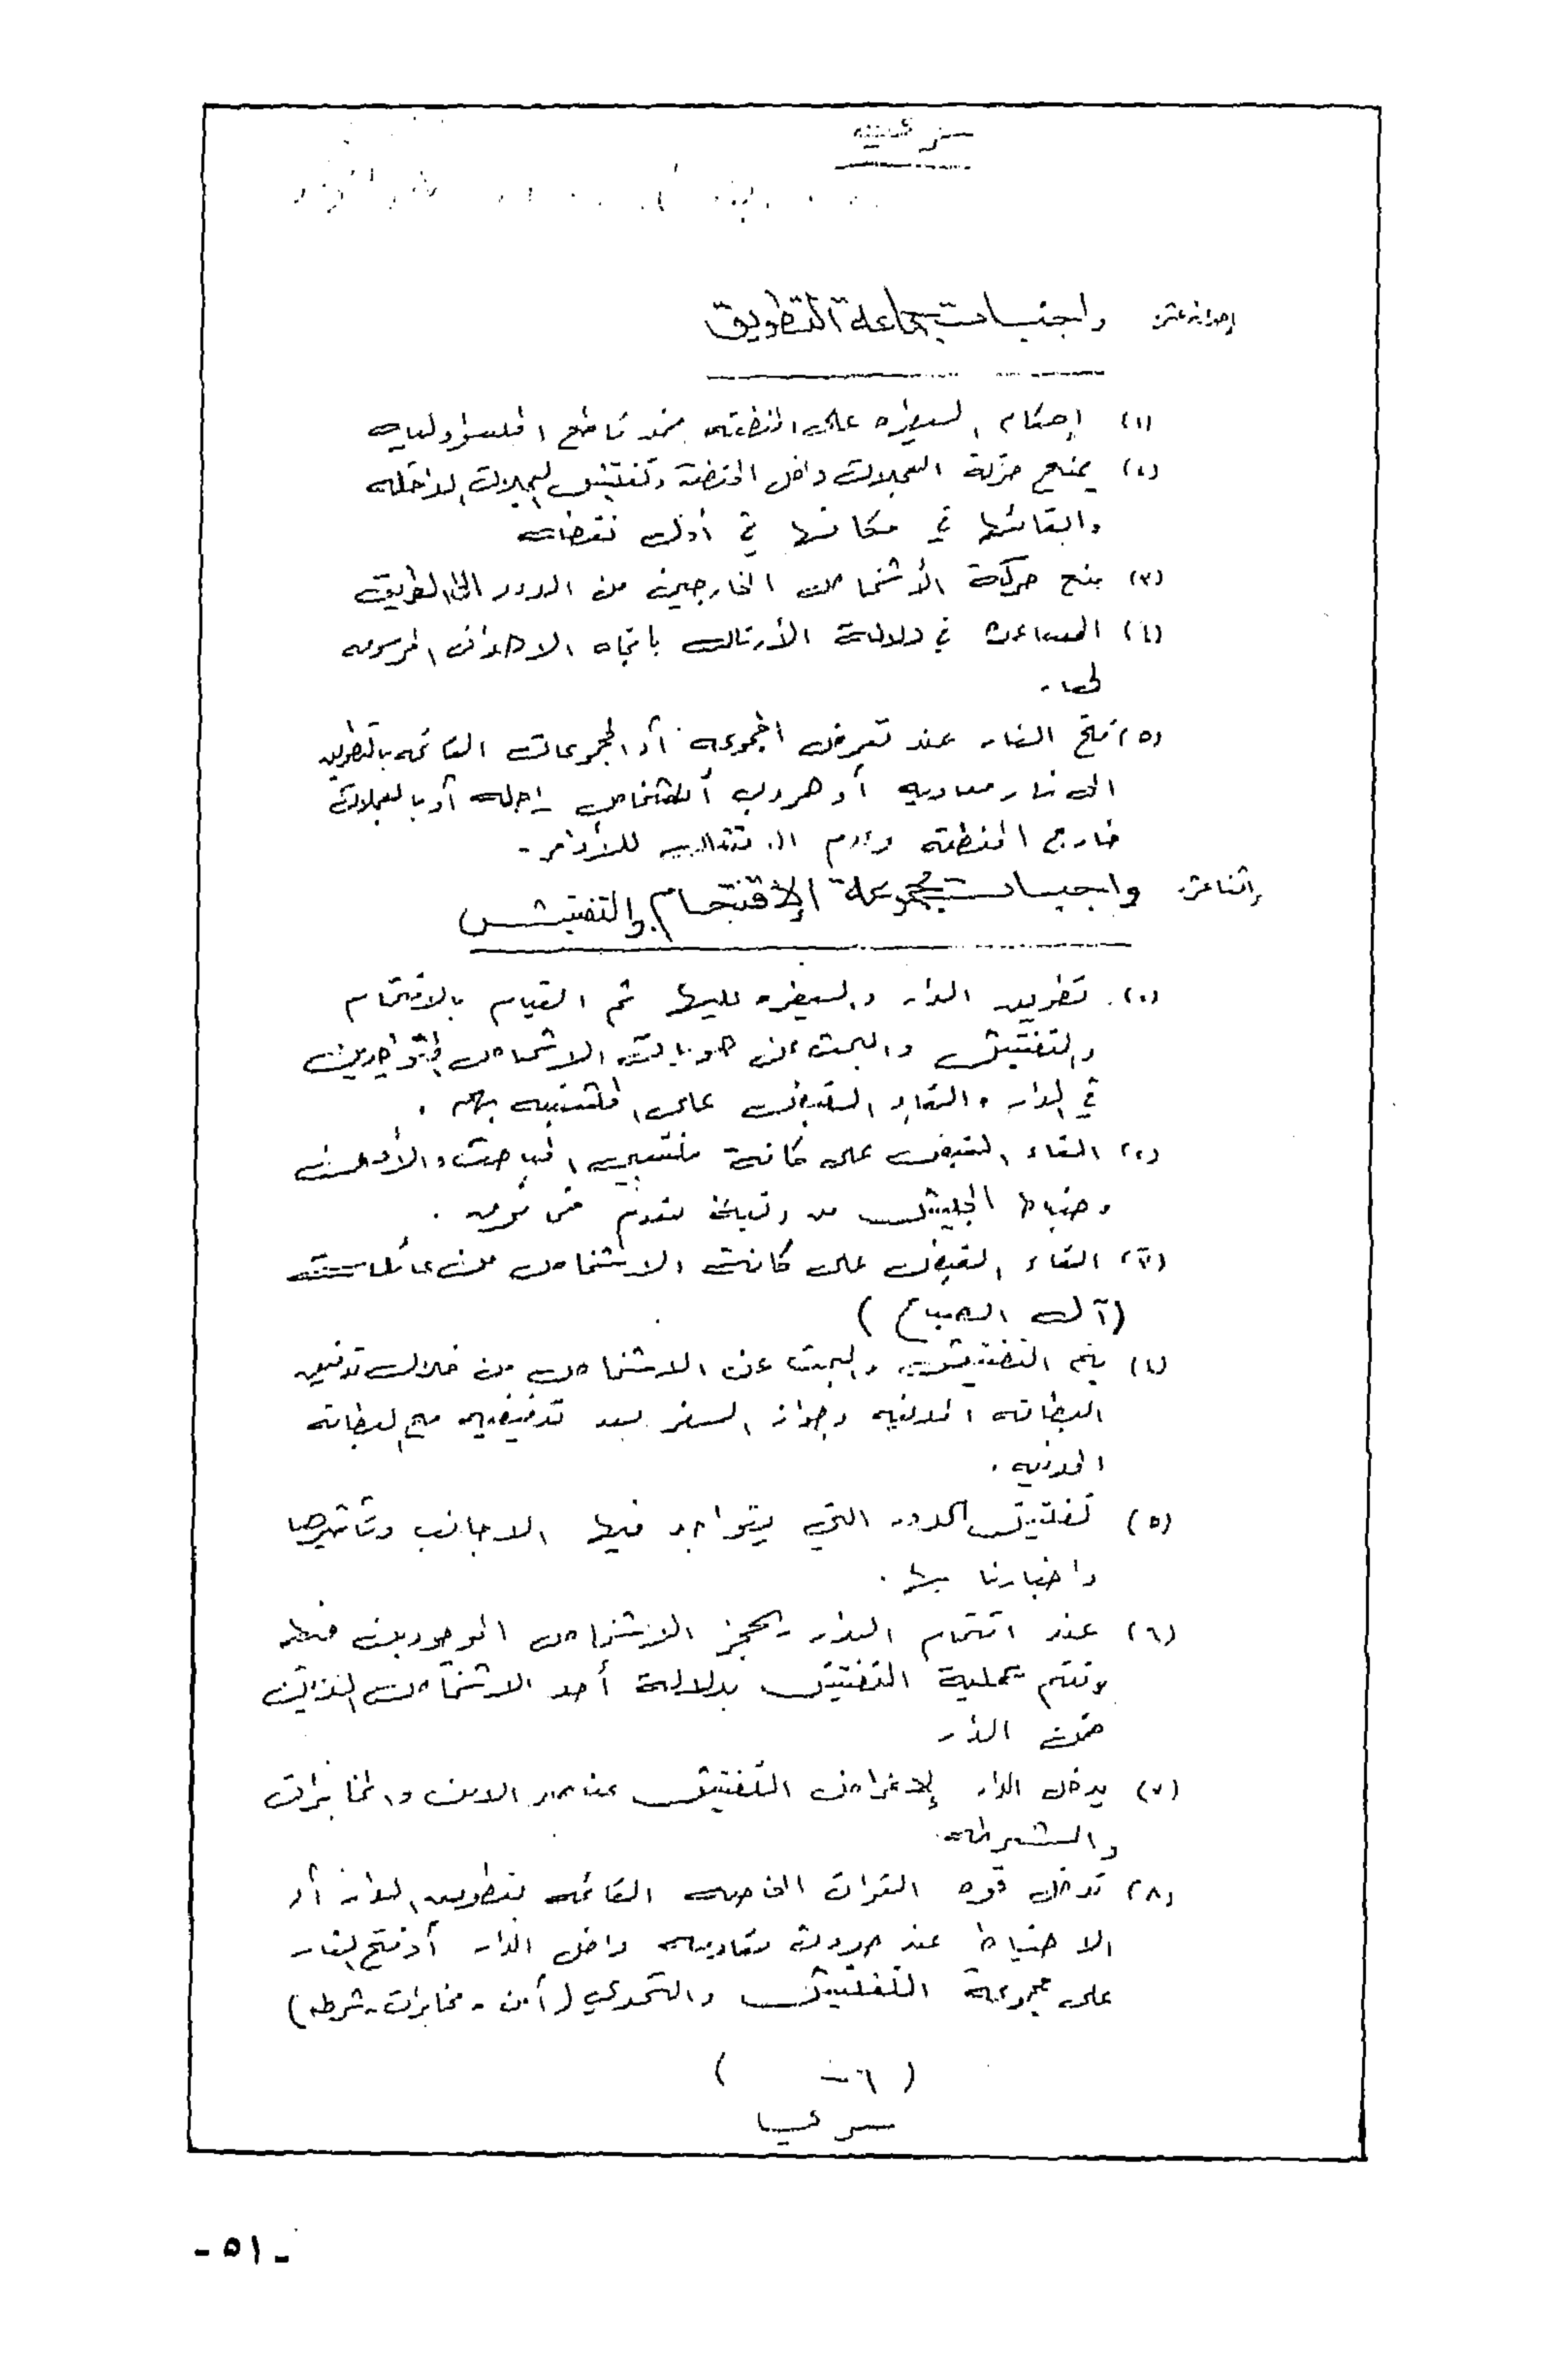 سر
إحدى عشر واجبات جماعة التطويق
(١) إحكام السيطره على المنطقه ضمن قاطع المسؤوليه
(٢) يمنع حركة العجلات داخل المنطقة وتفتيش العجلات الداخله
وابقائها في مكانها في أول نقطه
(٣) منع حركة الأشخاص الخارجين من الدور الى الطريق
(٤) المساعدة في دلالة الأرتال باتجاه الاهداف المرسومه
لها .
(٥) فتح النار عند تعرض المجموعه أو المجموعات القائمه بالتطويق
الى نار معاديه أو هروب أشخاص راجله أو بالعجلات
خارج المنطقه وعدم الامتثال للأوامر -
إثنا عشر واجبات مجموعة الإقتحام والتفتيش
(١) تطويق الدار والسيطره عليها ثم القيام بالاقتحام
والتفتيش والبحث عن هويات الاشخاص المتواجدين
في الدار والقاء القبض على المشتبه بهم .
(٢) القاء القبض على كافة منتسبي المباحث والأمن
وضباط الجيش من رتبة مقدم فما فوق .
(٣) القاء القبض على كافة الاشخاص من عائلة
(آل الصباح)
(٤) يتم التفتيش والبحث عن الاشخاص من خلال تدقيق
البطاقه المدنيه وجواز السفر بعد تدقيقه مع البطاقه
المدنيه .
(٥) تفتيش الدور التي يتواجد فيها الاجانب وتأشيرها
واخبارنا بها .
(٦) عند اقتحام الدار يحجز الاشخاص الموجودين فيها
وتتم عملية التفتيش بدلالة أحد الاشخاص الذين
ضمن الدار
(٧) يدخل الدار لاغراض التفتيش عناصر الامن والمخابرات
والشرطه
(٨) تدخل قوة القوات الخاصه القائمه بتطويق الدار أو
الاحتياط عند حدوث مقاومه داخل الدار أو فتح النار
على مجموعة التفتيش والتحري (أمن - مخابرات - شرطه)
( ٦ - )
سر
- ٥١ -